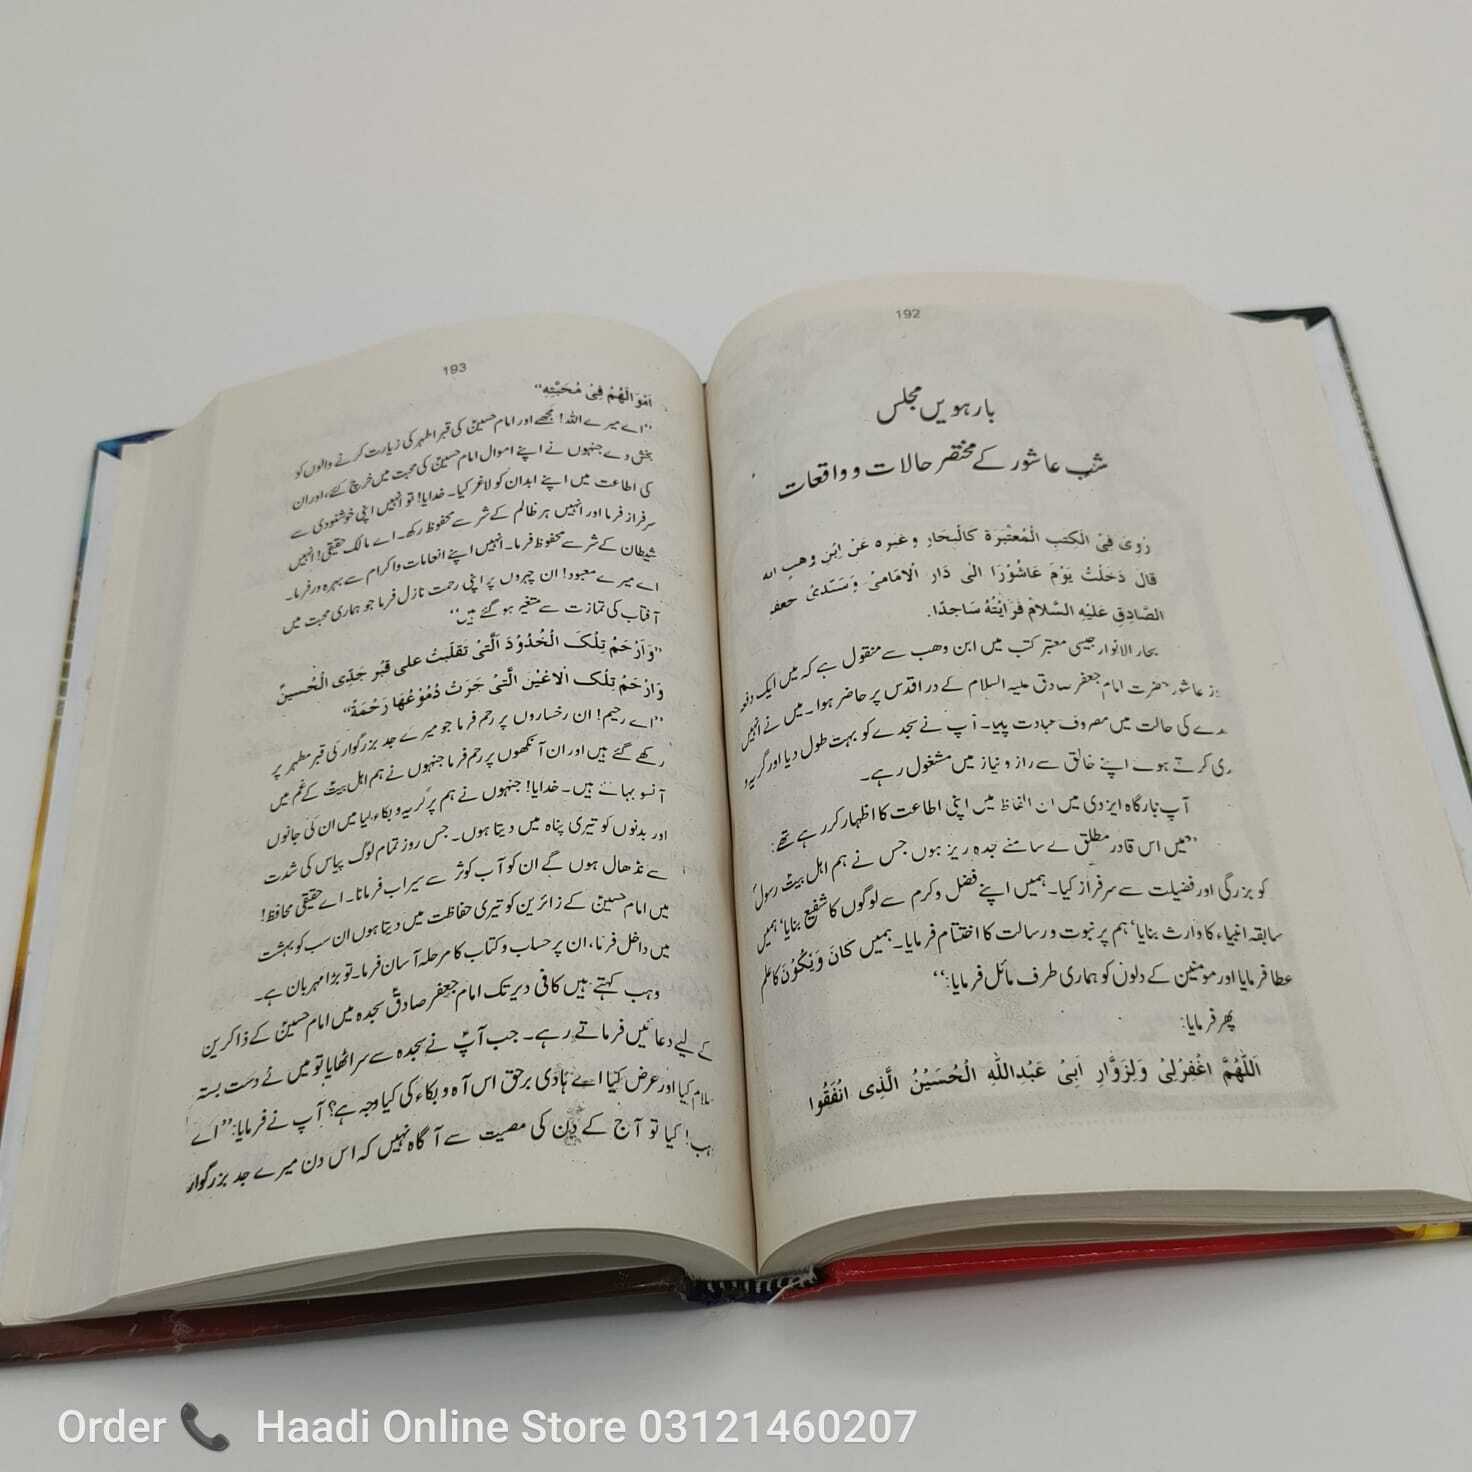 192
بارہویں مجلس
شب عاشور کے مختصر حالات و واقعات
رُوِیَ فِی الْکُتُبِ الْمُعْتَبَرَۃِ کَالْبِحَارِ وَغَیْرِہ عَنْ اِبْنِ وَھبٍ
قَالَ دَخَلْتُ یَوْمَ عَاشُوْرَا اِلٰی دَارِ الْاِمَامِیْ وَسَیِّدِیْ جعفر
الصَّادِقِ عَلَیْہِ السَّلَامُ فَرَایْتُہُ سَاجِدًا.
بحار الانوار جیسی معتبر کتب میں ابن وھب سے منقول ہے کہ میں ایک دفعہ
روز عاشور حضرت امام جعفر صادق علیہ السلام کے در اقدس پر حاضر ہوا۔ میں نے انہیں
سجدے کی حالت میں مصروف عبادت پایا۔ آپ نے سجدے کو بہت طول دیا اور گریہ و
زاری کرتے ہوئے اپنے خالق سے راز و نیاز میں مشغول رہے۔
آپ بارگاہ ایزدی میں ان الفاظ میں اپنی اطاعت کا اظہار کر رہے تھے:
”میں اس قادر مطلق کے سامنے سجدہ ریز ہوں جس نے ہم اہل بیتؑ رسولؐ
کو بزرگی اور فضیلت سے سرفراز کیا۔ ہمیں اپنے فضل و کرم سے لوگوں کا شفیع بنایا‘ ہمیں
سابقہ انبیاء کا وارث بنایا‘ ہم پر نبوت و رسالت کا اختتام فرمایا۔ ہمیں کَانَ وَیَکُوْنَ کا علم
عطا فرمایا اور مومنین کے دلوں کو ہماری طرف مائل فرمایا:“
پھر فرمایا:
اَللّٰھُمَّ اغْفِرْلِیْ وَلِزَوَّارِ اَبِیْ عَبْدِاللّٰہِ الْحُسَیْنُ الَّذِی انْفَقُوا
193
اَمْوَالَھُمْ فِیْ مُحَبَّتِہِ“
”اے میرے اللہ! مجھے اور امام حسینؑ کی قبر اطہر کی زیارت کرنے والوں کو
بخش دے جنہوں نے اپنے اموال امام حسینؑ کی محبت میں خرچ کئے، اور ان
کی اطاعت میں اپنے ابدان کو لاغر کیا۔ خدایا! تو انہیں اپنی خوشنودی سے
سرفراز فرما اور انہیں ہر ظالم کے شر سے محفوظ رکھ۔ اے مالک حقیقی! انہیں
شیطان کے شر سے محفوظ فرما۔ انہیں اپنے انعامات و اکرام سے بہرہ ور فرما۔
اے میرے معبود! ان چہروں پر اپنی رحمت نازل فرما جو ہماری محبت میں
آفتاب کی تمازت سے متغیر ہو گئے ہیں“
”وَارْحَمْ تِلْکَ الْخُدُوْدَ الَّتِیْ تَقَلَّبَتْ عَلٰی قَبْرِ جَدِّی الْحُسینؑ
وَارْحَمْ تِلْکَ الْاَعْیُنَ الَّتِیْ جَرَتْ دُمُوْعُھَا رَحْمَۃً“
”اے رحیم! ان رخساروں پر رحم فرما جو میرے جد بزرگوار کی قبر مطہر پر
رکھے گئے ہیں اور ان آنکھوں پر رحم فرما جنہوں نے ہم اہل بیتؑ کے غم میں
آنسو بہائے ہیں۔ خدایا! جنہوں نے ہم پر گریہ و بکاء کیا میں ان کی جانوں
اور بدنوں کو تیری پناہ میں دیتا ہوں۔ جس روز تمام لوگ پیاس کی شدت
سے نڈھال ہوں گے ان کو آب کوثر سے سیراب فرمانا۔ اے حقیقی محافظ!
میں امام حسینؑ کے زائرین کو تیری حفاظت میں دیتا ہوں ان سب کو بہشت
میں داخل فرما، ان پر حساب و کتاب کا مرحلہ آسان فرما۔ تو بڑا مہربان ہے۔
وہب کہتے ہیں کافی دیر تک امام جعفر صادقؑ سجدہ میں امام حسینؑ کے ذاکرین
کے لیے دعائیں فرماتے رہے۔ جب آپؑ نے سجدہ سے سر اٹھایا تو میں نے دست بستہ
سلام کیا اور عرض کیا اے ہادی برحق اس آہ و بکاء کی کیا وجہ ہے؟ آپ نے فرمایا: ”اے
وہب! کیا تو آج کے دن کی مصیبت سے آگاہ نہیں کہ اس دن میرے جد بزرگوار
Order Haadi Online Store 03121460207